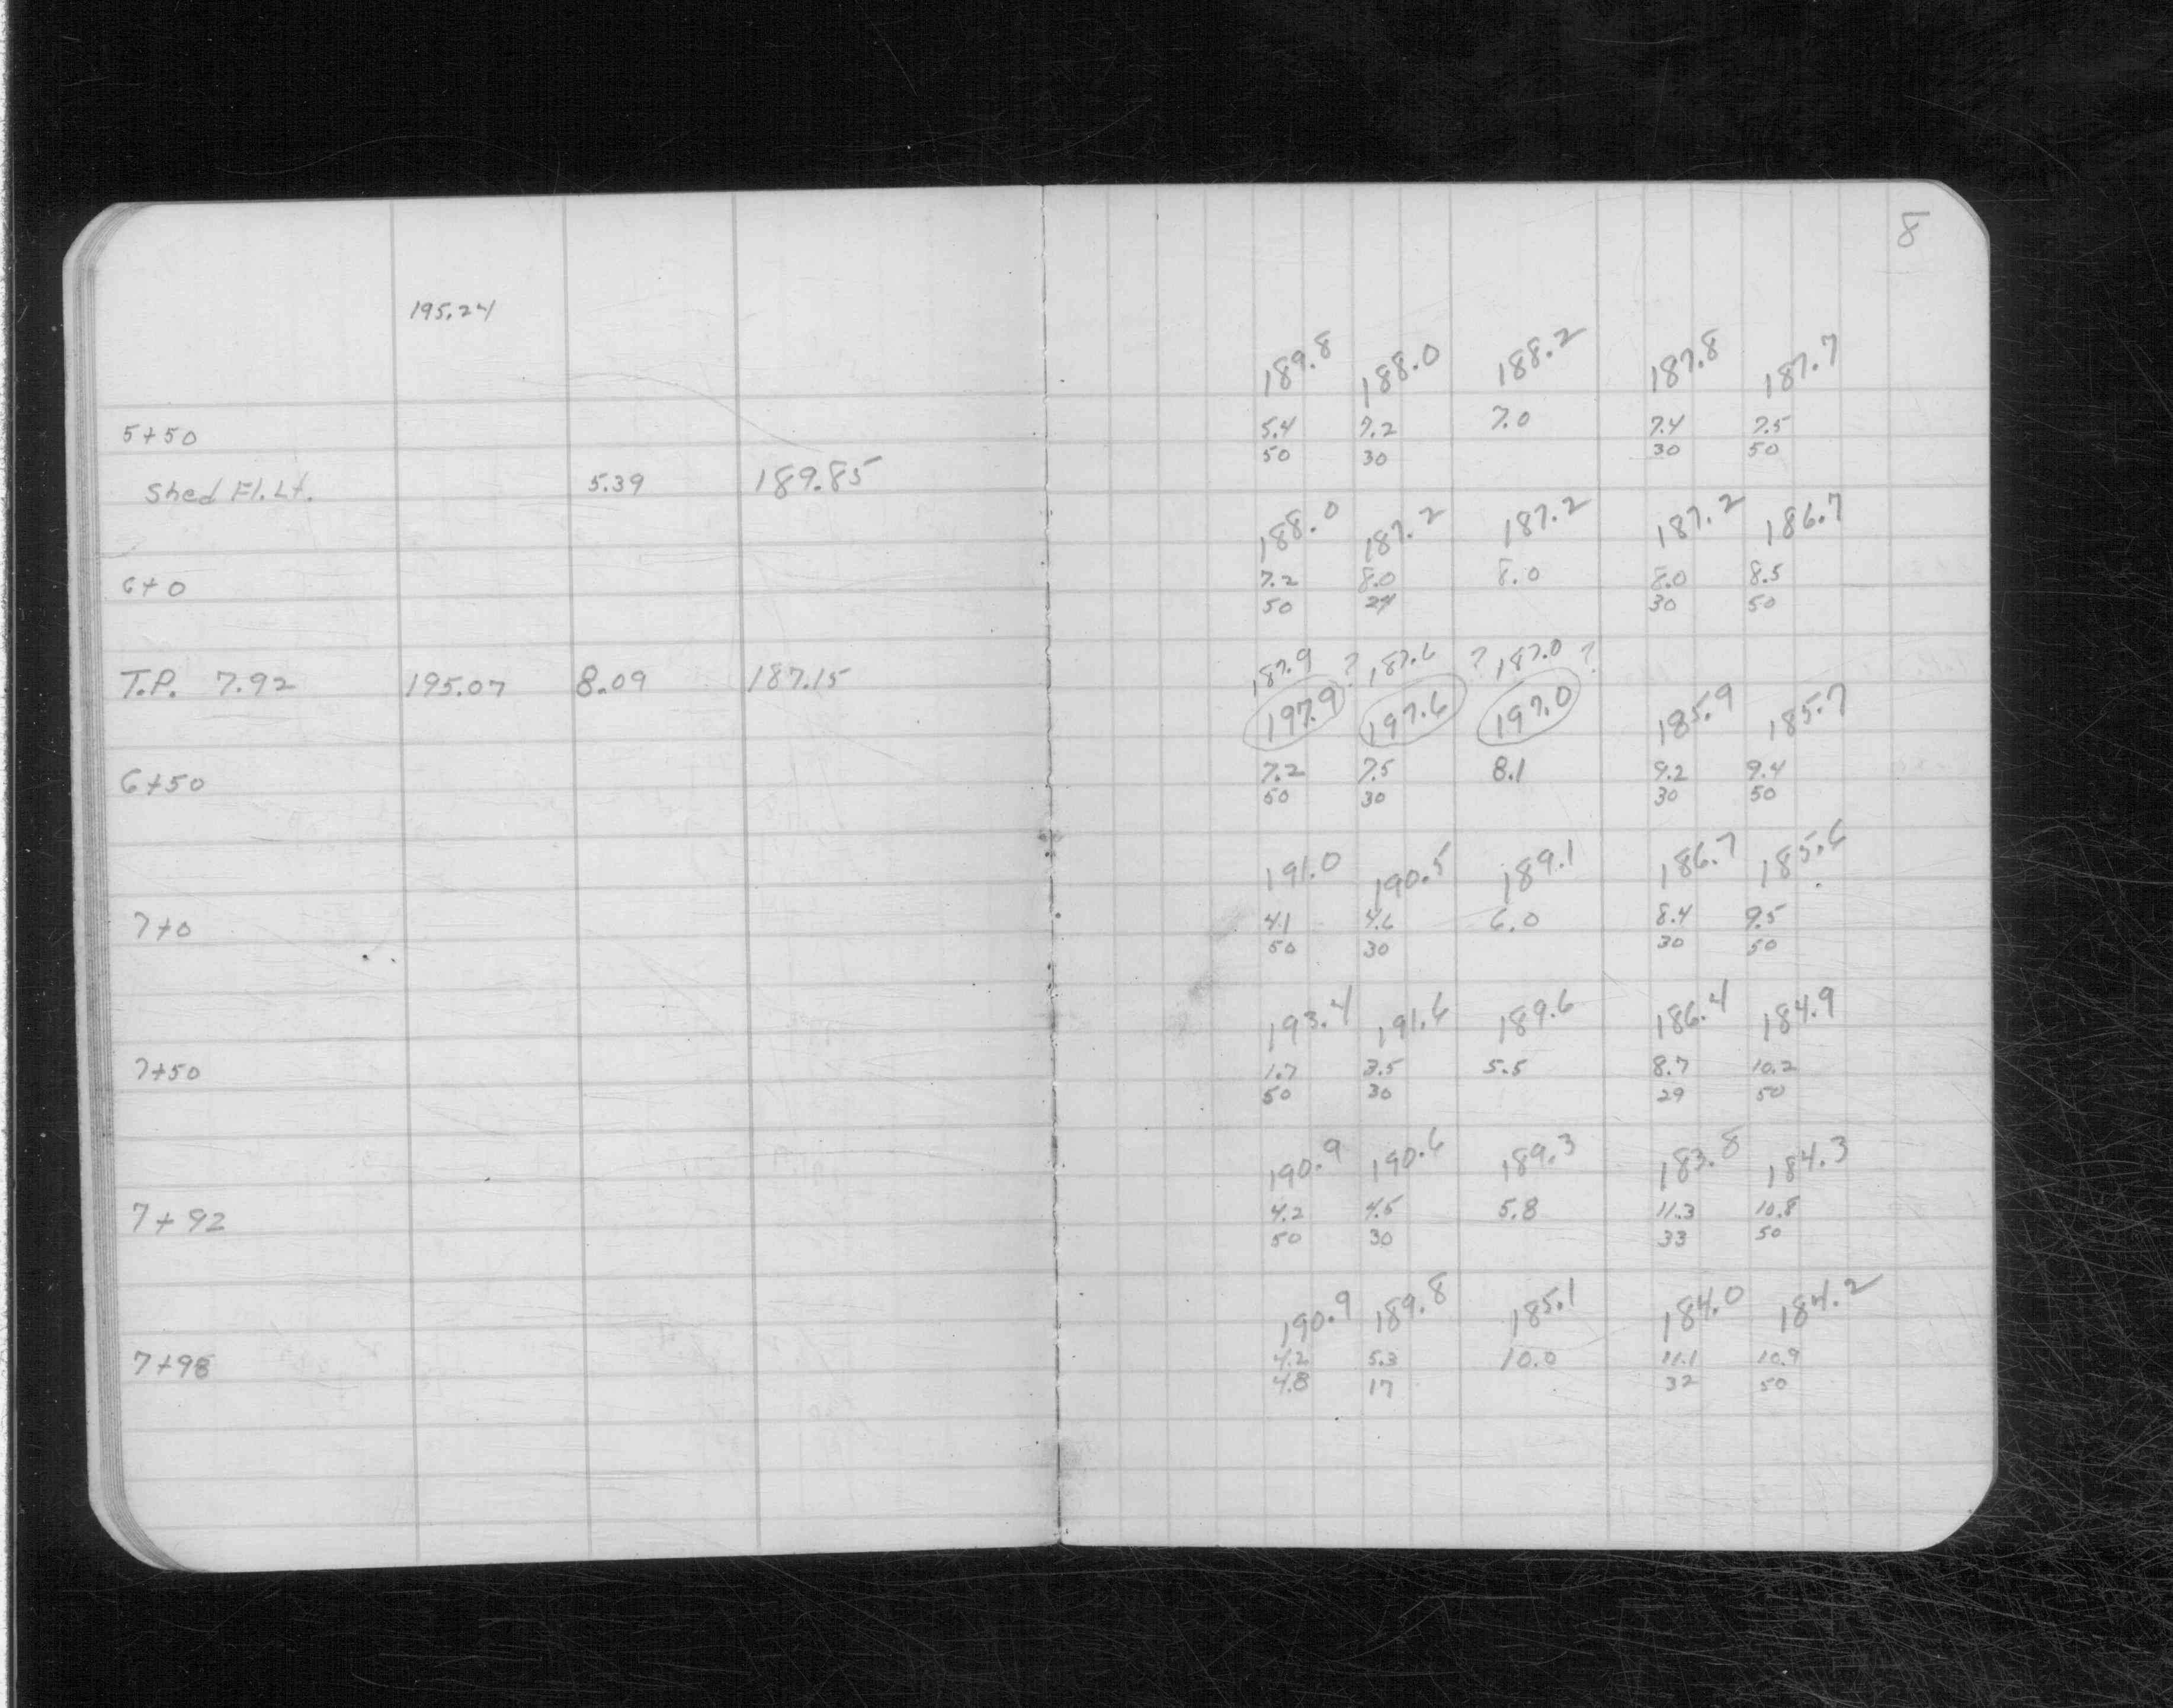 8
195.24
189.8 188.0 188.2 187.8 187.7
5+50 5.4 7.2 7.0 7.4 7.5
50 30 30 50
Shed Fl. Lt. 5.39 189.85
188.0 187.2 187.2 187.2 186.7
6+0 7.2 8.0 8.0 8.0 8.5
50 24 30 50
187.9 ? 187.6 ? 187.0 ?
T.P. 7.92 195.07 8.09 187.15
197.9 197.6 197.0 185.9 185.7
6+50 7.2 7.5 8.1 9.2 9.4
50 30 30 50
191.0 190.5 189.1 186.7 185.6
7+0 4.1 4.6 6.0 8.4 9.5
50 30 30 50
193.4 191.6 189.6 186.4 184.9
7+50 1.7 3.5 5.5 8.7 10.2
50 30 29 50
190.9 190.6 189.3 183.8 184.3
7+92 4.2 4.5 5.8 11.3 10.8
50 30 33 50
190.9 189.8 185.1 184.0 184.2
7+98 4.2 5.3 10.0 11.1 10.9
4.8 17 32 50